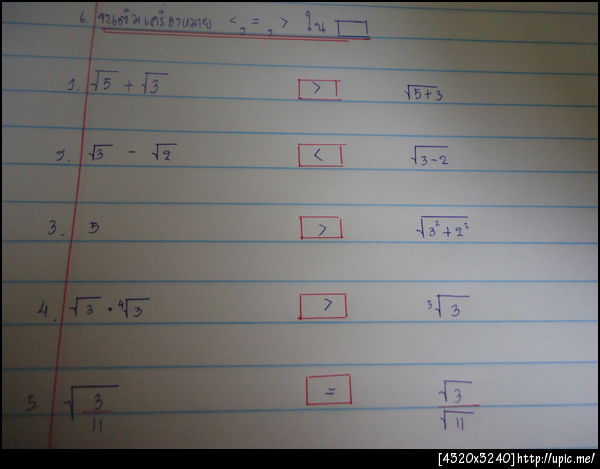 6. จงเติมเครื่องหมาย < , = , > ใน □
1. √5 + √3 > √5+3
2. √3 - √2 < √3-2
3. 5 > √3²+2²
4. √3 · ⁴√3 > ³√3
5. √3/11 = √3/√11
[4320x3240]http://upic.me/